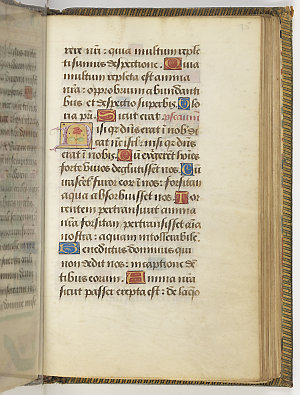 rere nr̃i: quia multum reple
ti sumus despectione. Quia
multum repleta est anima
nr̃a: opprobrium abundanti
bus et despectio superbis. Glo
ria pr̃i. Sicut erat
Nisi quia dñs erat in nobis di
cat nũc isrl: nisi quia dñs
erat in nobis. Cũ exurgerẽt hoĩes
forte vivos deglutissent nos. Cũ
irasceret̃ furor eor̃ in nos: forsitan
aqua absorbuisset nos. Tor
rentem pertransivit anima
nr̃a: forsitan pertransisset aĩa
nostra: aquam intollerabilẽ.
Benedictus dominus qui
non dedit nos: in captionẽ den
tibus eorum. Anima nr̃a
sicut passer erepta est: de laqueo